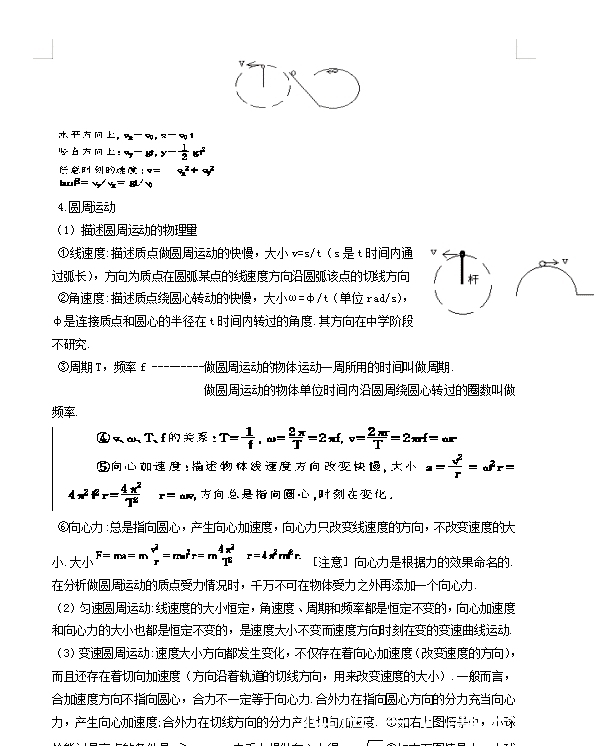 V
V
水平方向上, vx=v0, x=v0 t
竖直方向上: vy=gt, y=1/2 gt²
任意时刻的速度: v= vx²+vy²
tanθ=vy/vx=gt/v0
4.圆周运动
(1) 描述圆周运动的物理量
①线速度:描述质点做圆周运动的快慢, 大小 v=s/t (s 是 t 时间内通
过弧长), 方向为质点在圆弧某点的线速度方向沿圆弧该点的切线方向
V
杆
V
②角速度:描述质点绕圆心转动的快慢, 大小ω=φ/t (单位 rad/s),
φ是连接质点和圆心的半径在 t 时间内转过的角度. 其方向在中学阶段
不研究.
③周期 T, 频率 f ---------做圆周运动的物体运动一周所用的时间叫做周期.
做圆周运动的物体单位时间内沿圆周绕圆心转过的圈数叫做
频率.
④v、ω、T、f 的关系: T=1/f, ω=2π/T=2πf, v=2πr/T=2πrf=ωr
⑤向心加速度:描述物体线速度方向改变快慢, 大小 a=v²/r=ω²r=
4π²f²r=4π²/T² r=ωv, 方向总是指向圆心, 时刻在变化.
⑥向心力:总是指向圆心, 产生向心加速度, 向心力只改变线速度的方向, 不改变速度的大
小. 大小 F=ma=m v²/r=mω²r=m 4π²/T² r=4π²mf²r. [注意] 向心力是根据力的效果命名的.
在分析做圆周运动的质点受力情况时, 千万不可在物体受力之外再添加一个向心力.
(2) 匀速圆周运动:线速度的大小恒定, 角速度、周期和频率都是恒定不变的, 向心加速度
和向心力的大小也都是恒定不变的, 是速度大小不变而速度方向时刻在变的变速曲线运动.
(3) 变速圆周运动:速度大小方向都发生变化, 不仅存在着向心加速度 (改变速度的方向),
而且还存在着切向加速度 (方向沿着轨道的切线方向, 用来改变速度的大小) . 一般而言,
合加速度方向不指向圆心, 合力不一定等于向心力. 合外力在指向圆心方向的分力充当向心
力, 产生向心加速度; 合外力在切线方向的分力产生切向加速度. ①如右上图情景中, 小球